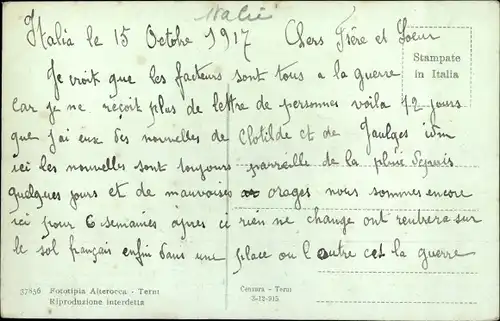 Italie
Italia le 15 Octobre 1917 Chers Frère et Soeur
Stampate
in Italia
Je croit que les facteurs sont tous a la guerre
Car je ne reçoit plus de lettre de personnes voila 12 jours
que j'ai eux des nouvelles de Clotilde et de Gaulges idem
ici les nouvelles sont toujours pareille de la pluie depuis
quelques jours et de mauvaises orages nous sommes encore
ici pour 6 semaines apres ci rien ne change ont rentrera sur
le sol français enfin dans une place ou l'autre cet la guerre
37856 Fototipia Alterocca - Terni
Riproduzione interdetta
Censura - Terni
3-12-915